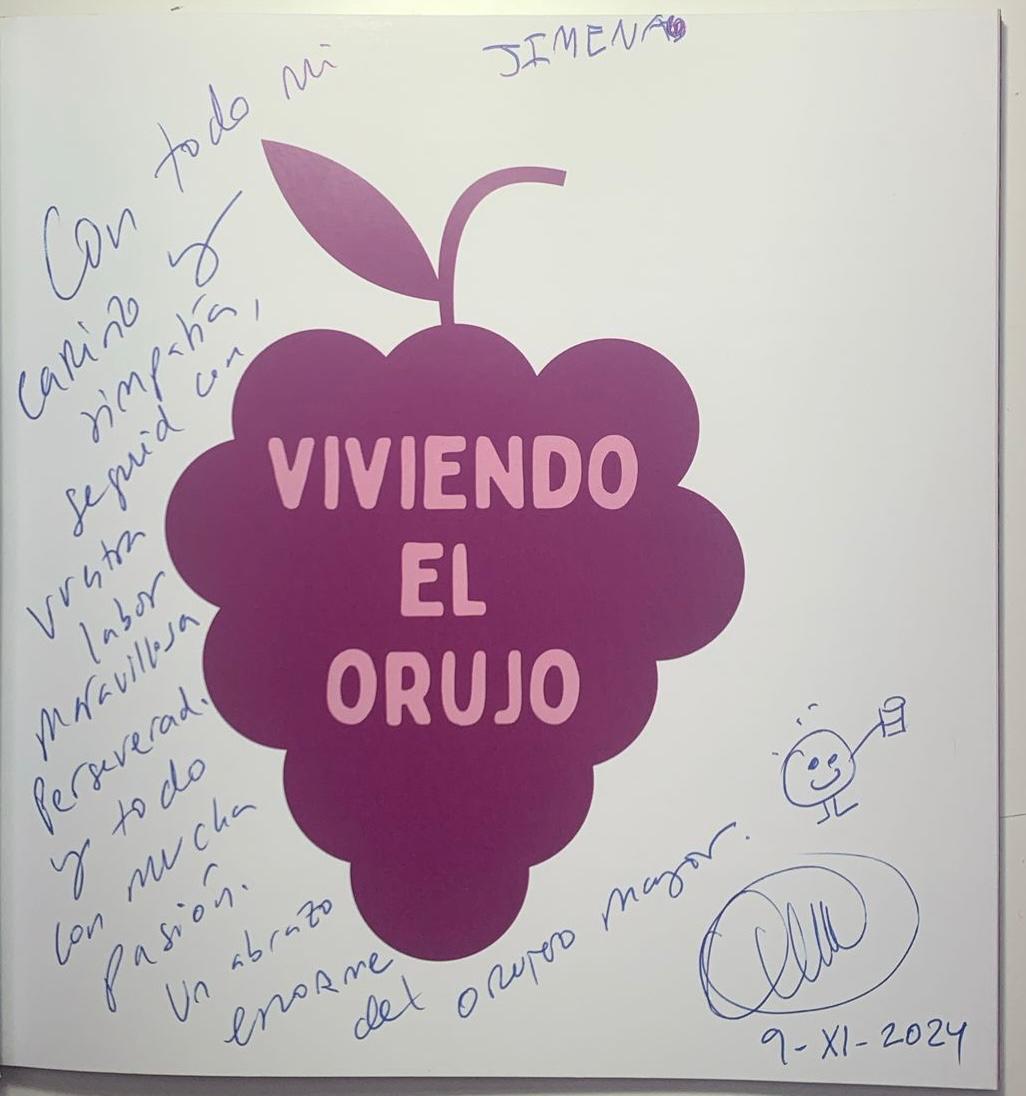 JIMENA
Con todo mi
cariño y
simpatía,
seguid con
vuestra
labor
maravillosa
Perseverad.
y todo
con mucha
pasión.
Un abrazo
enorme
del orujero mayor.
VIVIENDO
EL
ORUJO
9-XI-2024